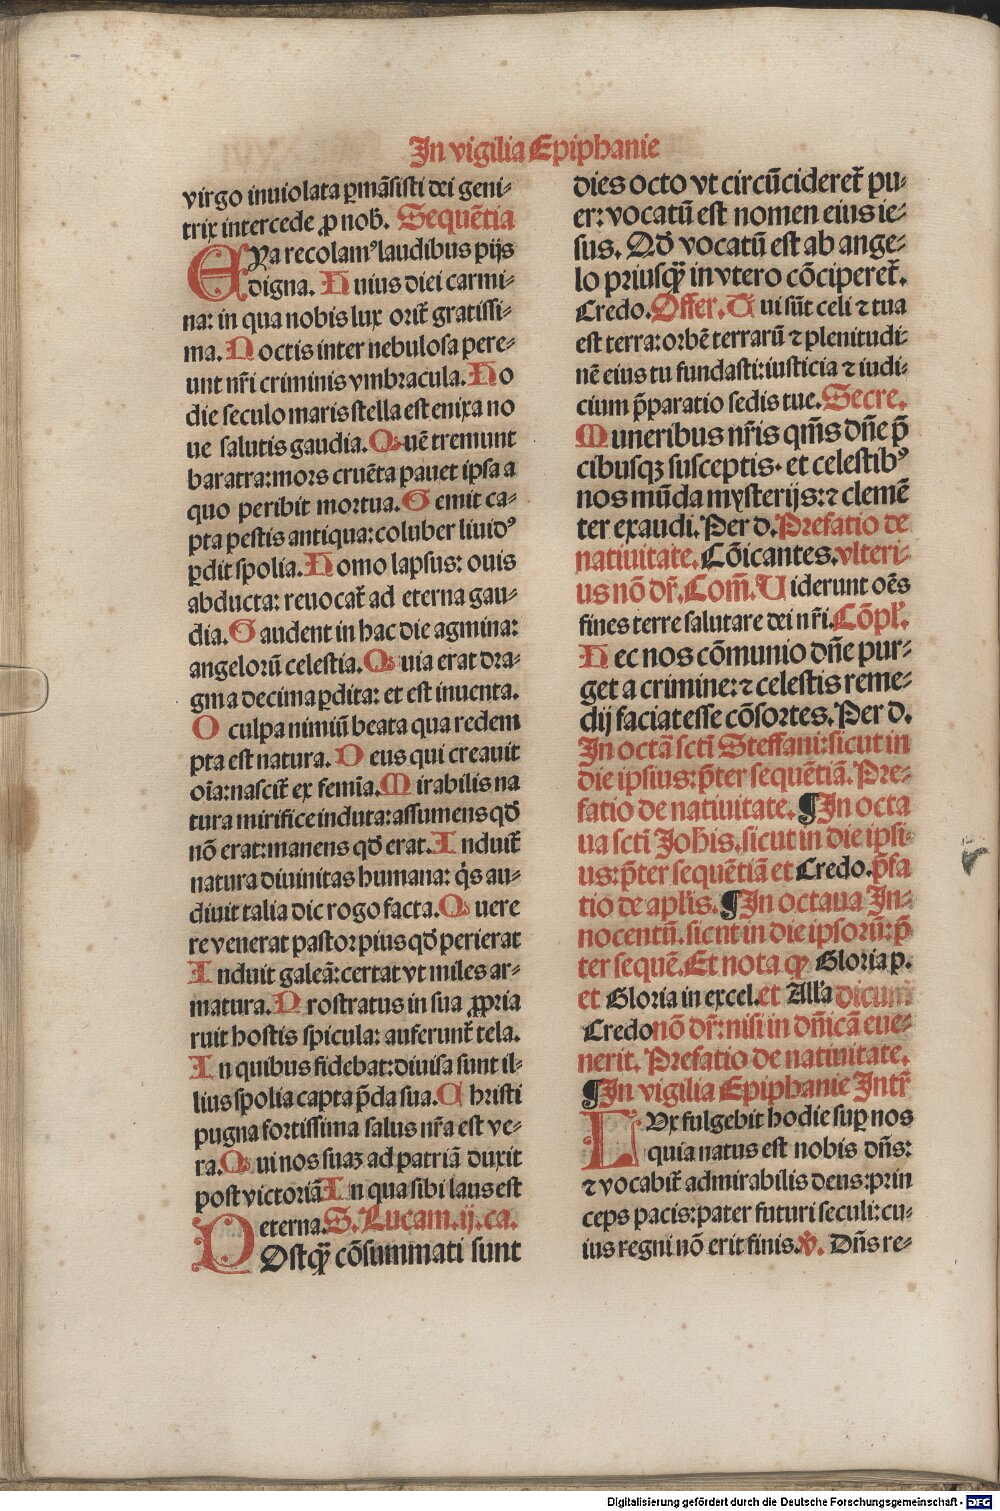 In vigilia Epiphanie
virgo inuiolata ꝑmãsisti dei geni-
trix intercede ꝓ nob̃. Sequẽtia
EYa recolamꝰ laudibus pijs
digna. Huius diei carmi-
na: in qua nobis lux orit̃ gratissi-
ma. Noctis inter nebulosa pere-
unt nr̃i criminis vmbracula. Ho
die seculo maris stella est enixa no
ue salutis gaudia. Quẽ tremunt
baratra: mors cruẽta pauet ipsa a
quo peribit mortua. Gemit ca-
pta pestis antiqua: coluber liuidꝰ
ꝑdit spolia. Homo lapsus: ouis
abducta: reuocat̃ ad eterna gau-
dia. Gaudent in hac die agmina:
angelorũ celestia. Quia erat dra-
gma decima ꝑdita: et est inuenta.
O culpa nimiũ beata qua redem
pta est natura. Deus qui creauit
oĩa: nascit̃ ex femĩa. Mirabilis na
tura mirifice induta: assumens qð
nõ erat: manens qð erat. Induit̃
natura diuinitas humana: q̃s au-
diuit talia dic rogo facta. Quere
re venerat pastor pius qð perierat
Induit galeã: certat vt miles ar-
matura. Prostratus in sua ꝓpria
ruit hostis spicula: auferunt̃ tela.
In quibus fidebat: diuisa sunt il-
lius spolia capta p̃da sua. Christi
pugna fortissima salus nr̃a est ve-
ra. Qui nos suaz ad patriã duxit
post victoriã In qua sibi laus est
eterna. S. Lucam. ij. ca.
POstꝙ̃ cõsummati sunt
dies octo vt circũcideret̃ pu-
er: vocatũ est nomen eius ie-
sus. Qð vocatũ est ab ange-
lo priusꝙ̃ in vtero cõciperet̃.
Credo. Offer. Tui sũt celi ⁊ tua
est terra: orbẽ terrarũ ⁊ plenitudi-
nẽ eius tu fundasti: iusticia ⁊ iudi-
cium p̃paratio sedis tue. Secre.
Muneribus nr̃is qm̃s dñe p̃
cibusqꝫ susceptis. et celestibꝰ
nos mũda mysterijs: ⁊ clemẽ
ter exaudi. Per d. Prefatio de
natiuitate. Cõicantes. vlteri-
us nõ dr̃. Com̃. Uiderunt oẽs
fines terre salutare dei nr̃i. Cõpl̃.
Hec nos cõmunio dñe pur-
get a crimine: ⁊ celestis reme-
dij faciat esse cõsortes. Per d.
In octã sctĩ Steffani: sicut in
die ipsius: p̃ter sequẽtiã. Pre-
fatio de natiuitate. ¶In octa
ua sctĩ Johis. sicut in die ipsi-
us: p̃ter sequẽtiã et Credo. p̃fa
tio de apl̃is. ¶In octaua In-
nocentũ. sicut in die ipsorũ: p̃
ter sequẽ. Et nota ꝙ Gloria p.
et Gloria in excel. et All̃a dicunt̃
Credo nõ dr̃: nisi in dñicã eue-
nerit. Prefatio de natiuitate.
¶In vigilia Epiphanie Intr̃
LVx fulgebit hodie suꝑ nos
quia natus est nobis dñs:
⁊ vocabit̃ admirabilis deus: prin
ceps pacis: pater futuri seculi: cu-
ius regni nõ erit finis. ℣. Dñs re-
Digitalisierung gefördert durch die Deutsche Forschungsgemeinschaft - DFG